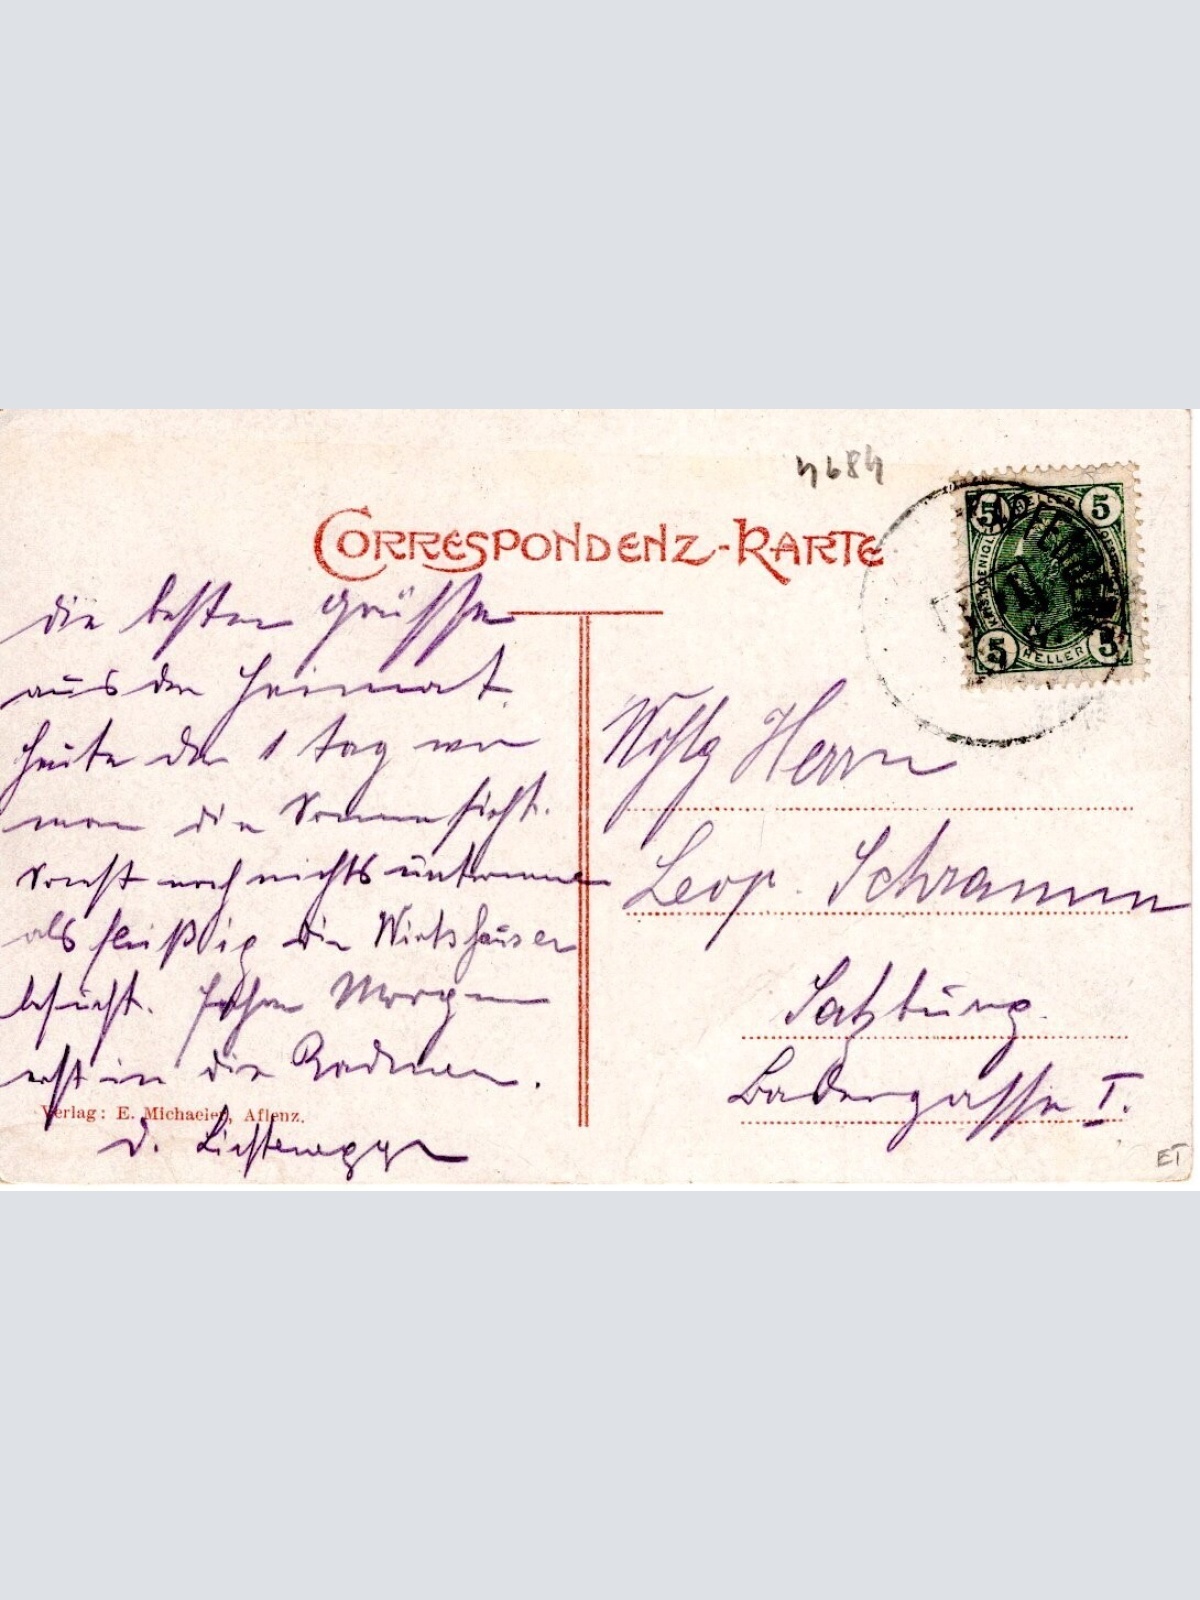 4684
CORRESPONDENZ-KARTE
5 5
5 HELLER 5
die besten Grüsse
aus der Heimat.
Heute der 1 Tag wo
man die Sonne sieht.
Sonst noch nichts unternomme
als fleißig die Wirtshäuser
besucht. Morgen
erst in die Radmer.
Verlag: E. Michaeler, Aflenz.
D. Liechtenegger
Wohlg Herrn
Leop. Schramm
Salzburg.
Badergasse I.
ET